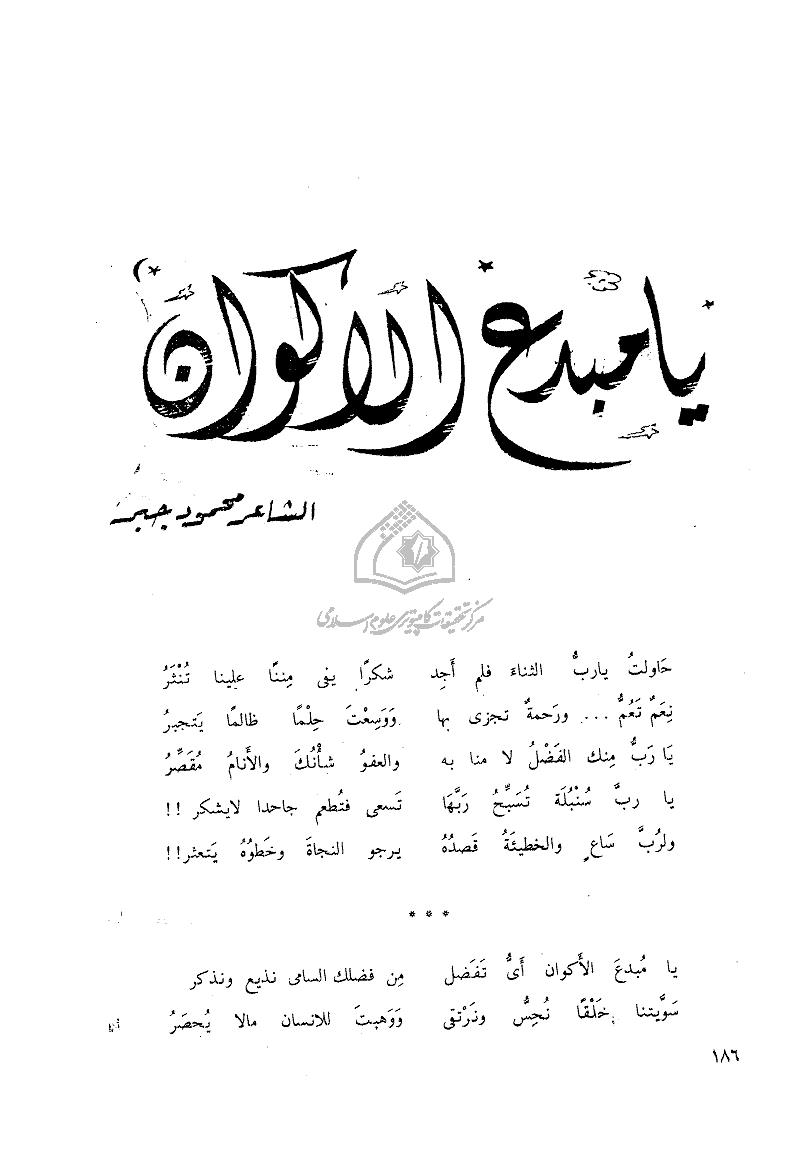 يا مبدع الأكوان
الشاعر محمود جبر
مركز تحقيقات كامپيوترى علوم اسلامى
حَاولتُ ياربُّ الثناءَ فلم أَجِد شكرًا يفى مِننًا علينا تُنْثَرُ
نِعَمٌ تَعُمُّ ... ورَحمةٌ تجزى بها وَوَسِعْتَ حِلْمًا ظالمًا يَتجبرُ
يَا رَبُّ مِنك الفَضْلُ لا منا به والعفوُ شأْنُكَ والأَنامُ مُقَصِّرُ
يا ربَّ سُنْبُلَة تُسَبِّحُ رَبَّهَا تَسعى فتُطعم جاحدا لايشكر !!
ولرُبَّ سَاعٍ والخطيئَةُ قَصدُهُ يرجو النجاةَ وخَطوُهُ يَتعثر!!
* * *
يا مُبدعَ الأَكوان أَىُّ تَفَضل مِن فضلك السامى نذيع ونذكر
سَوَّيتنا خَلْقًا نُحِسُّ ونَرْتقى وَوَهبتَ للانسان مالا يُحصَرُ
١٨٦